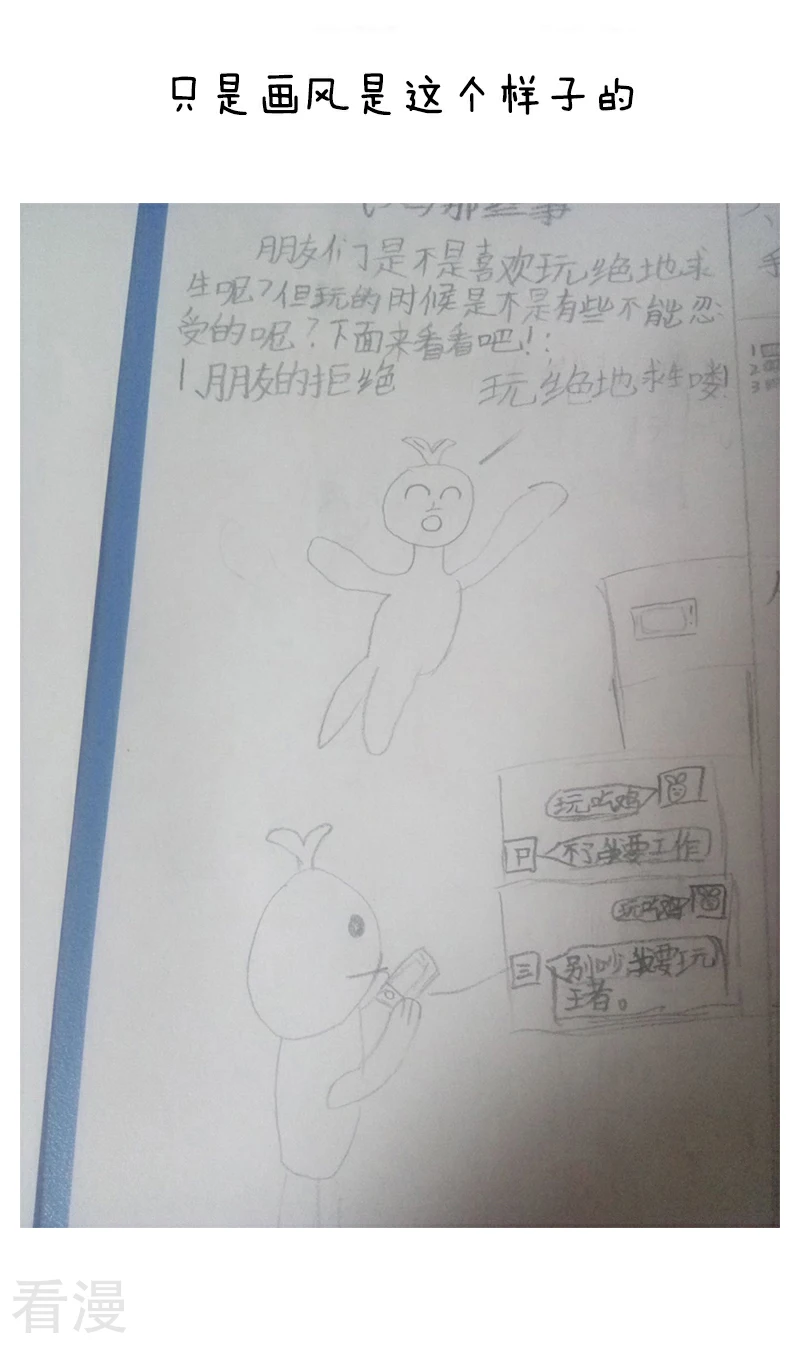 只是画风是这个样子的
那些事
朋友们是不是喜欢玩绝地求
生呢?但玩的时候是不是有些不能忍
受的呢?下面来看看吧!:
1、朋友的拒绝
玩绝地求生喽!
玩吃鸡
不了我要工作
玩吃鸡
别吵,我要玩
王者。
1
2
3
看漫